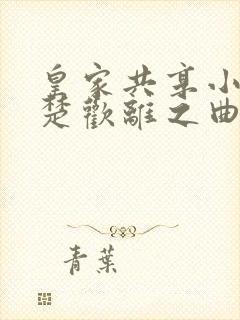 皇家共享小
楚歡離之曲
青葉